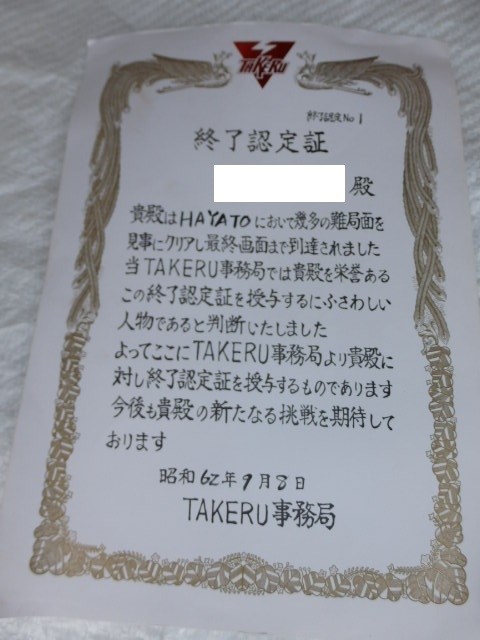 TAKERU
終了認定No 1
終了認定証
殿
貴殿はHAYATOにおいて幾多の難局面を
見事にクリアし最終画面まで到達されました
当TAKERU事務局では貴殿を栄誉ある
この終了認定証を授与するにふさわしい
人物であると判断いたしました
よってここにTAKERU事務局より貴殿に
対し終了認定証を授与するものであります
今後も貴殿の新たなる挑戦を期待して
おります
昭和62年9月8日
TAKERU事務局